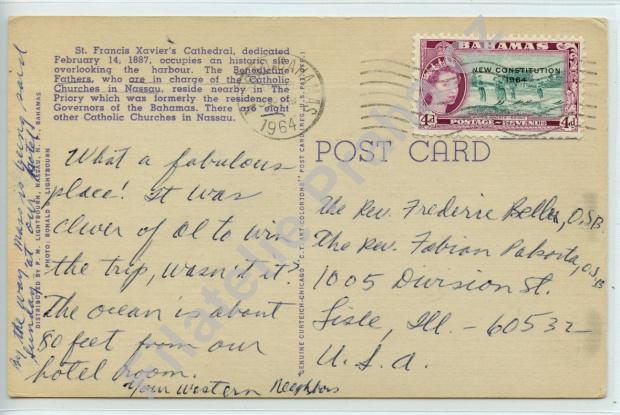 St. Francis Xavier's Cathedral, dedicated
February 14, 1887, occupies an historic site
overlooking the harbour. The Benedictine
Fathers, who are in charge of the Catholic
Churches in Nassau, reside nearby in The
Priory which was formerly the residence of
Governors of the Bahamas. There are four
other Catholic Churches in Nassau.
BAHAMAS
NEW CONSTITUTION
1964
4d
POSTAGE REVENUE
4d
1964
POST CARD
What a fabulous
place! It was
clever of Al to win
the trip, wasn't it?
The ocean is about
80 feet from our
hotel room.
Your Western Neighbors
By the way Mass is being said
Sunday at our hotel
DISTRIBUTED BY P. M. LIGHTBOURN, NASSAU, N. P., BAHAMAS
PHOTO: RONALD LIGHTBOURN
GENUINE CURTEICH-CHICAGO "C.T. ART-COLORTONE" POST CARD (REG. U.S. PAT. OFF.)
The Rev. Frederic Beller, O.S.B.
The Rev. Fabian O.S.B
1005 Division St.
Lisle, Ill. - 60532
U.S.A.